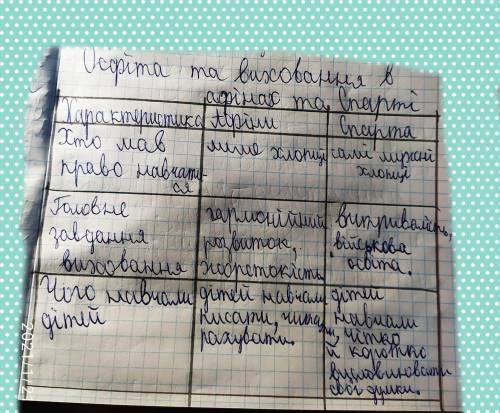 Освіта та виховання в
афінах та Спарті
Характеристика Афіни Спарта
Хто мав лише хлопці
право навчати- хлопці
ся
Головне гармонійний витривалість,
завдання розвиток, військова
виховання жорстокість освіта.
Чого навчали дітей навчали дітей
дітей писати, читати, навчали
рахувати. чітко
й коротко
висловлювати
свої думки.